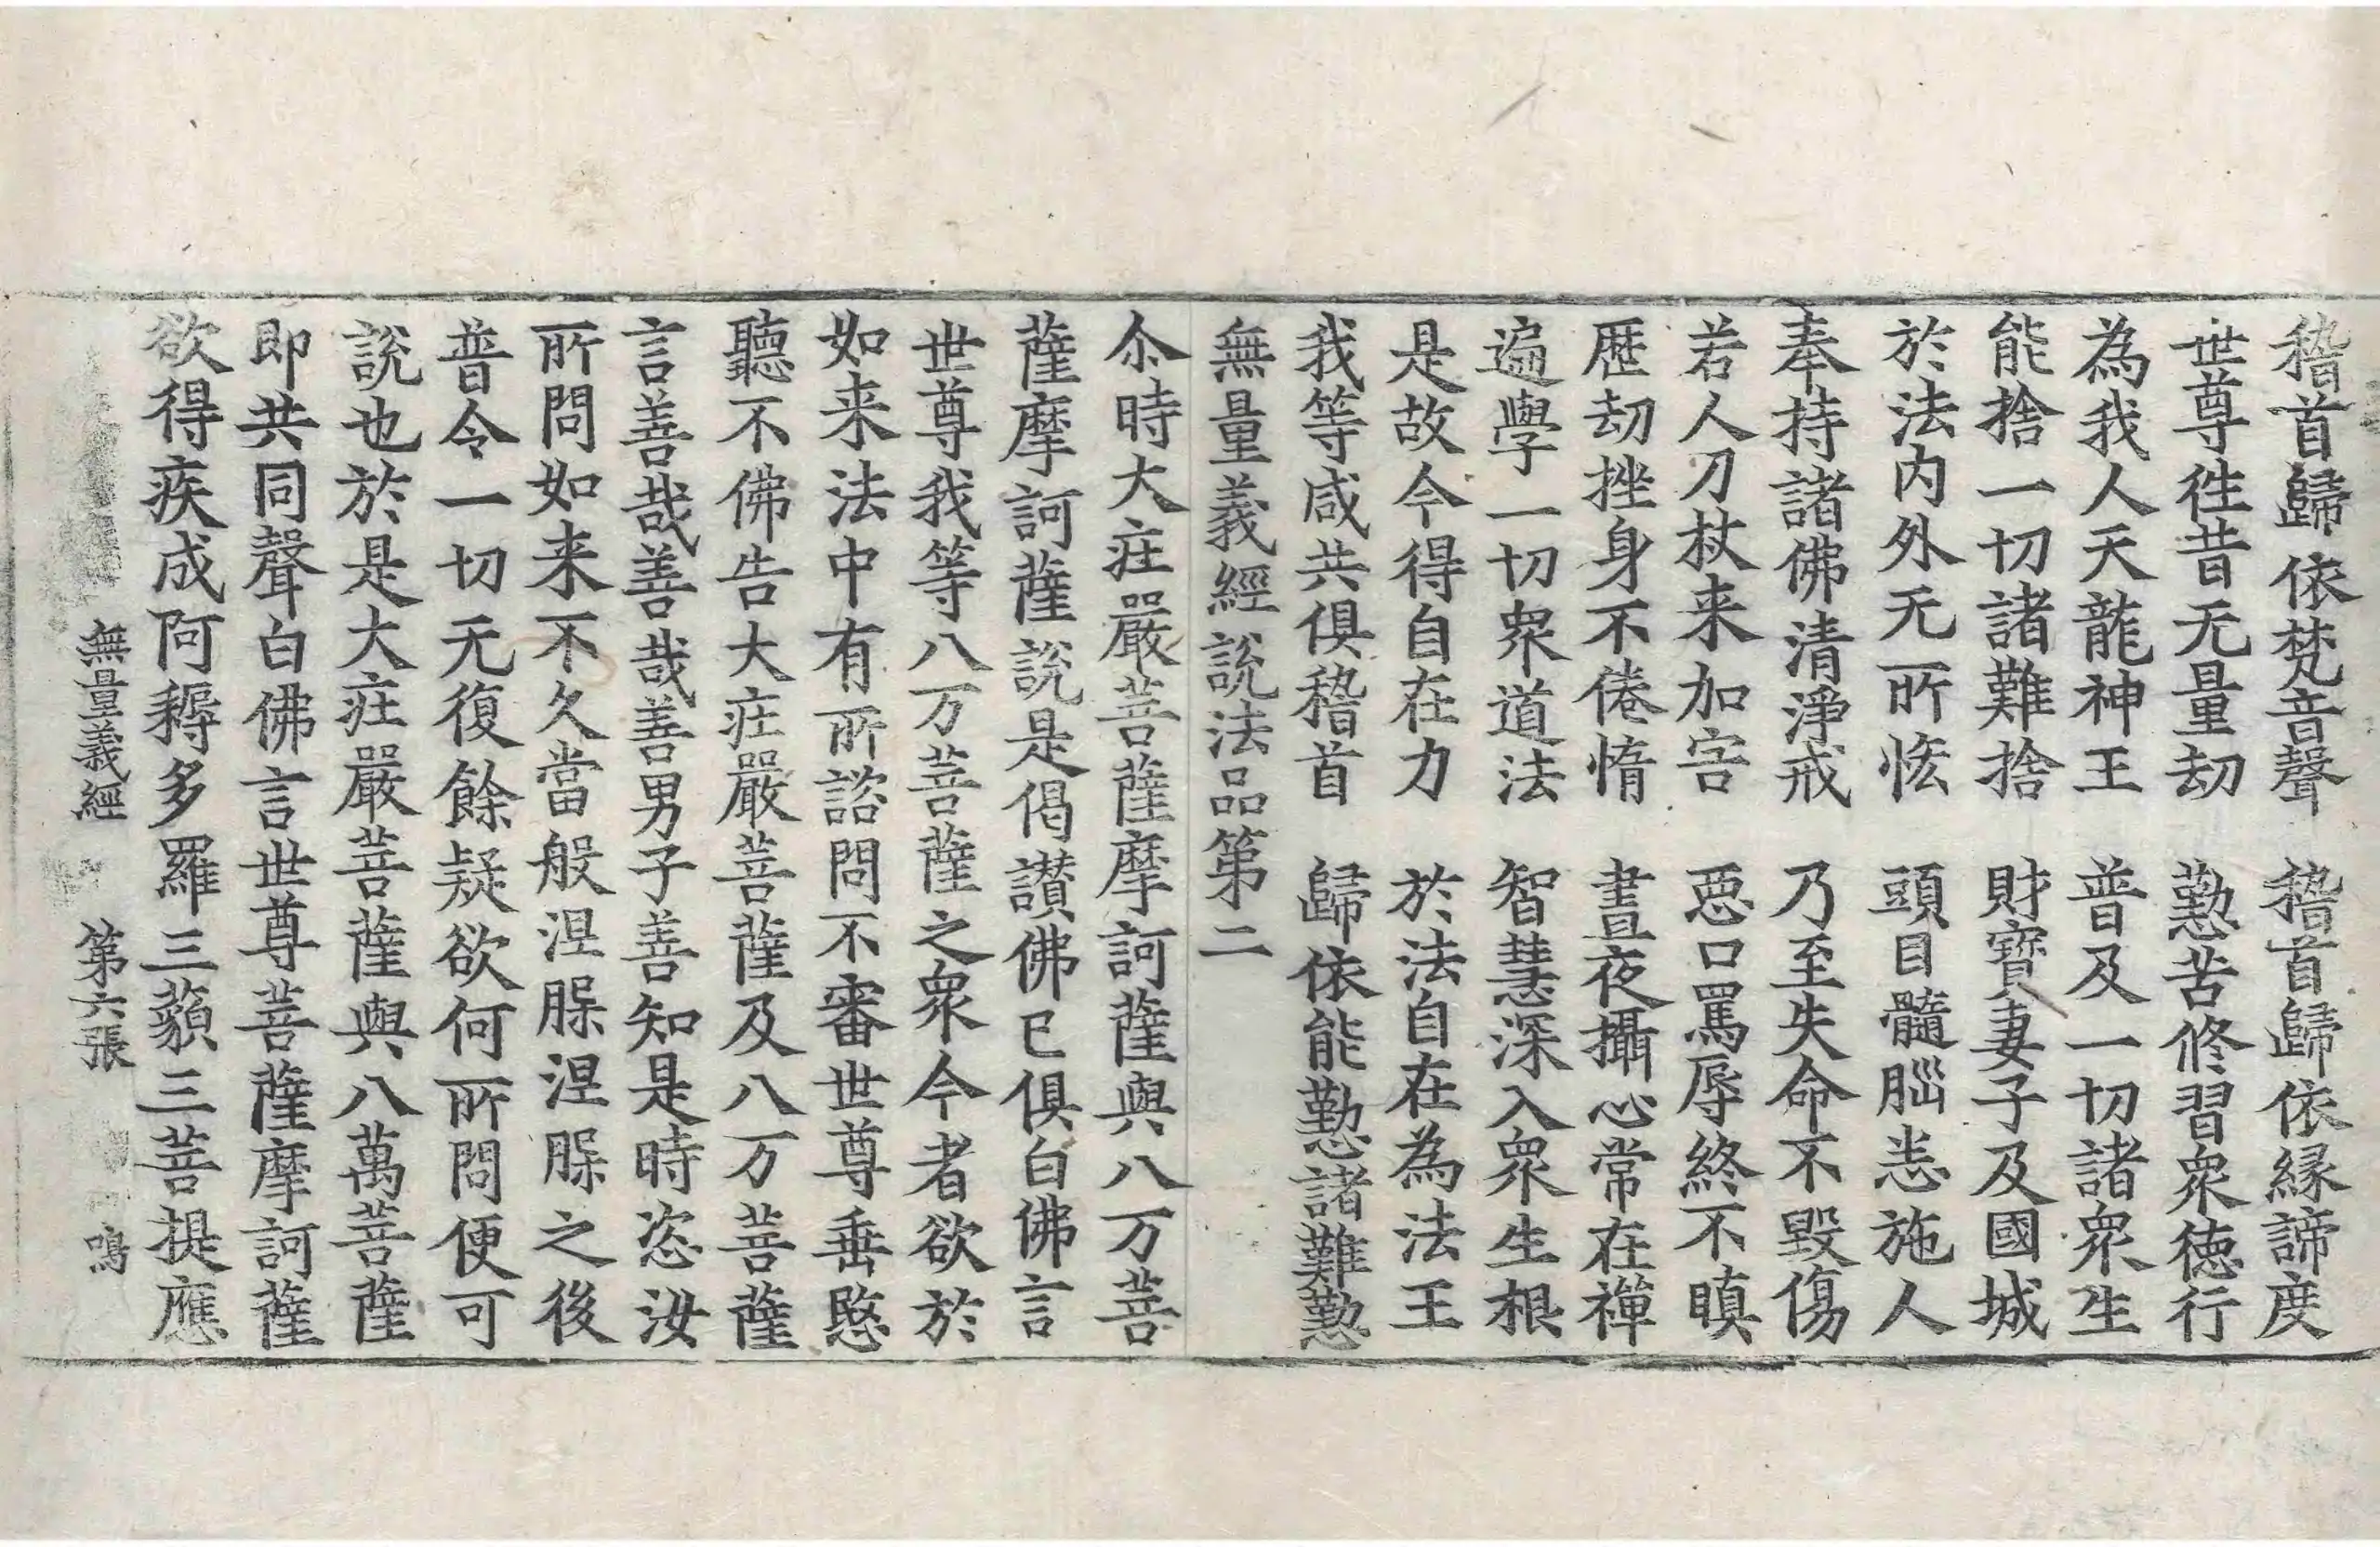 稽首歸依梵音聲　稽首歸依緣諦度
世尊徃昔无量劫　懃苦修習衆徳行
為我人天龍神王　普及一切諸衆生
能捨一切諸難捨　財寶妻子及國城
於法内外无所悋　頭目髓腦恚施人
奉持諸佛清淨戒　乃至失命不毀傷
若人刀杖来加害　惡口罵辱終不瞋
歷劫挫身不倦惰　晝夜攝心常在禪
遍學一切衆道法　智慧深入衆生根
是故今得自在力　於法自在為法王
我等咸共俱稽首　歸依能懃諸難懃
無量義經說法品第二
尒時大莊嚴菩薩摩訶薩與八万菩
薩摩訶薩說是偈讃佛已俱白佛言
世尊我等八万菩薩之衆今者欲於
如来法中有所諮問不審世尊垂愍
聽不佛告大莊嚴菩薩及八万菩薩
言善哉善哉善男子善知是時恣汝
所問如来不久當般涅槃涅槃之後
普令一切无復餘疑欲何所問便可
說也於是大莊嚴菩薩與八萬菩薩
即共同聲白佛言世尊菩薩摩訶薩
欲得疾成阿耨多羅三藐三菩提應
無量義經　第六張　鳴